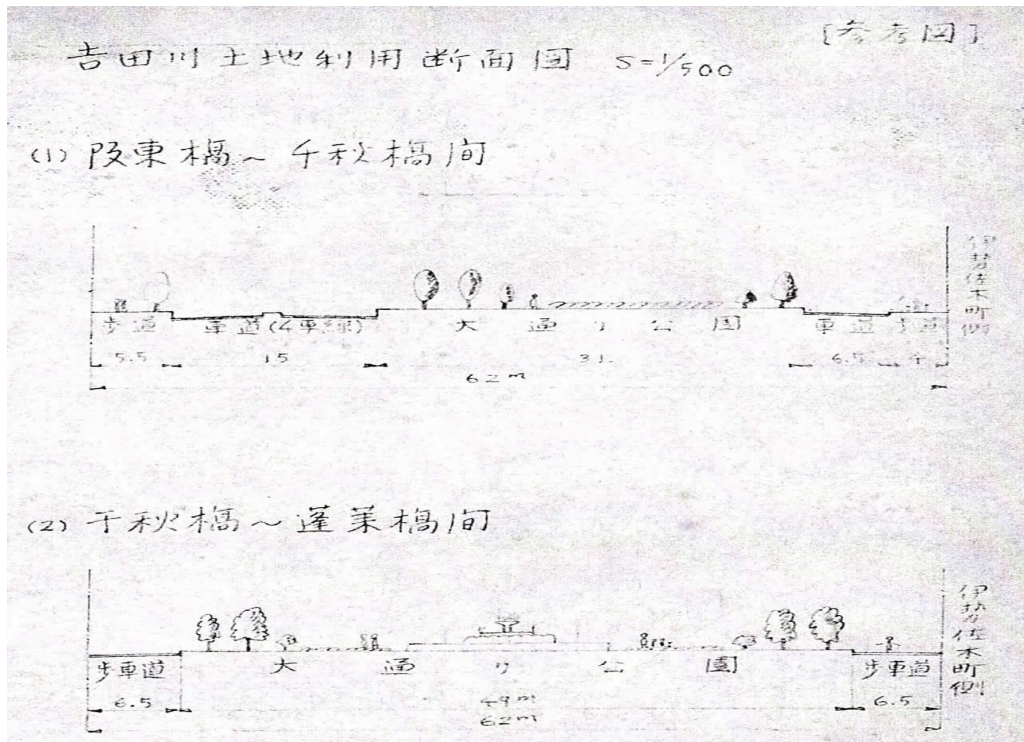 [参考図]
吉田川土地利用断面図 S=1/500
(1) 阪東橋～千秋橋間
伊勢佐木町側
歩道 車道(4車線) 大通り公園 車道 歩道
5.5 15 31. 6.5 4
62m
(2) 千秋橋～蓬莱橋間
伊勢佐木町側
歩車道 大通り公園 歩車道
6.5 49m 6.5
62m